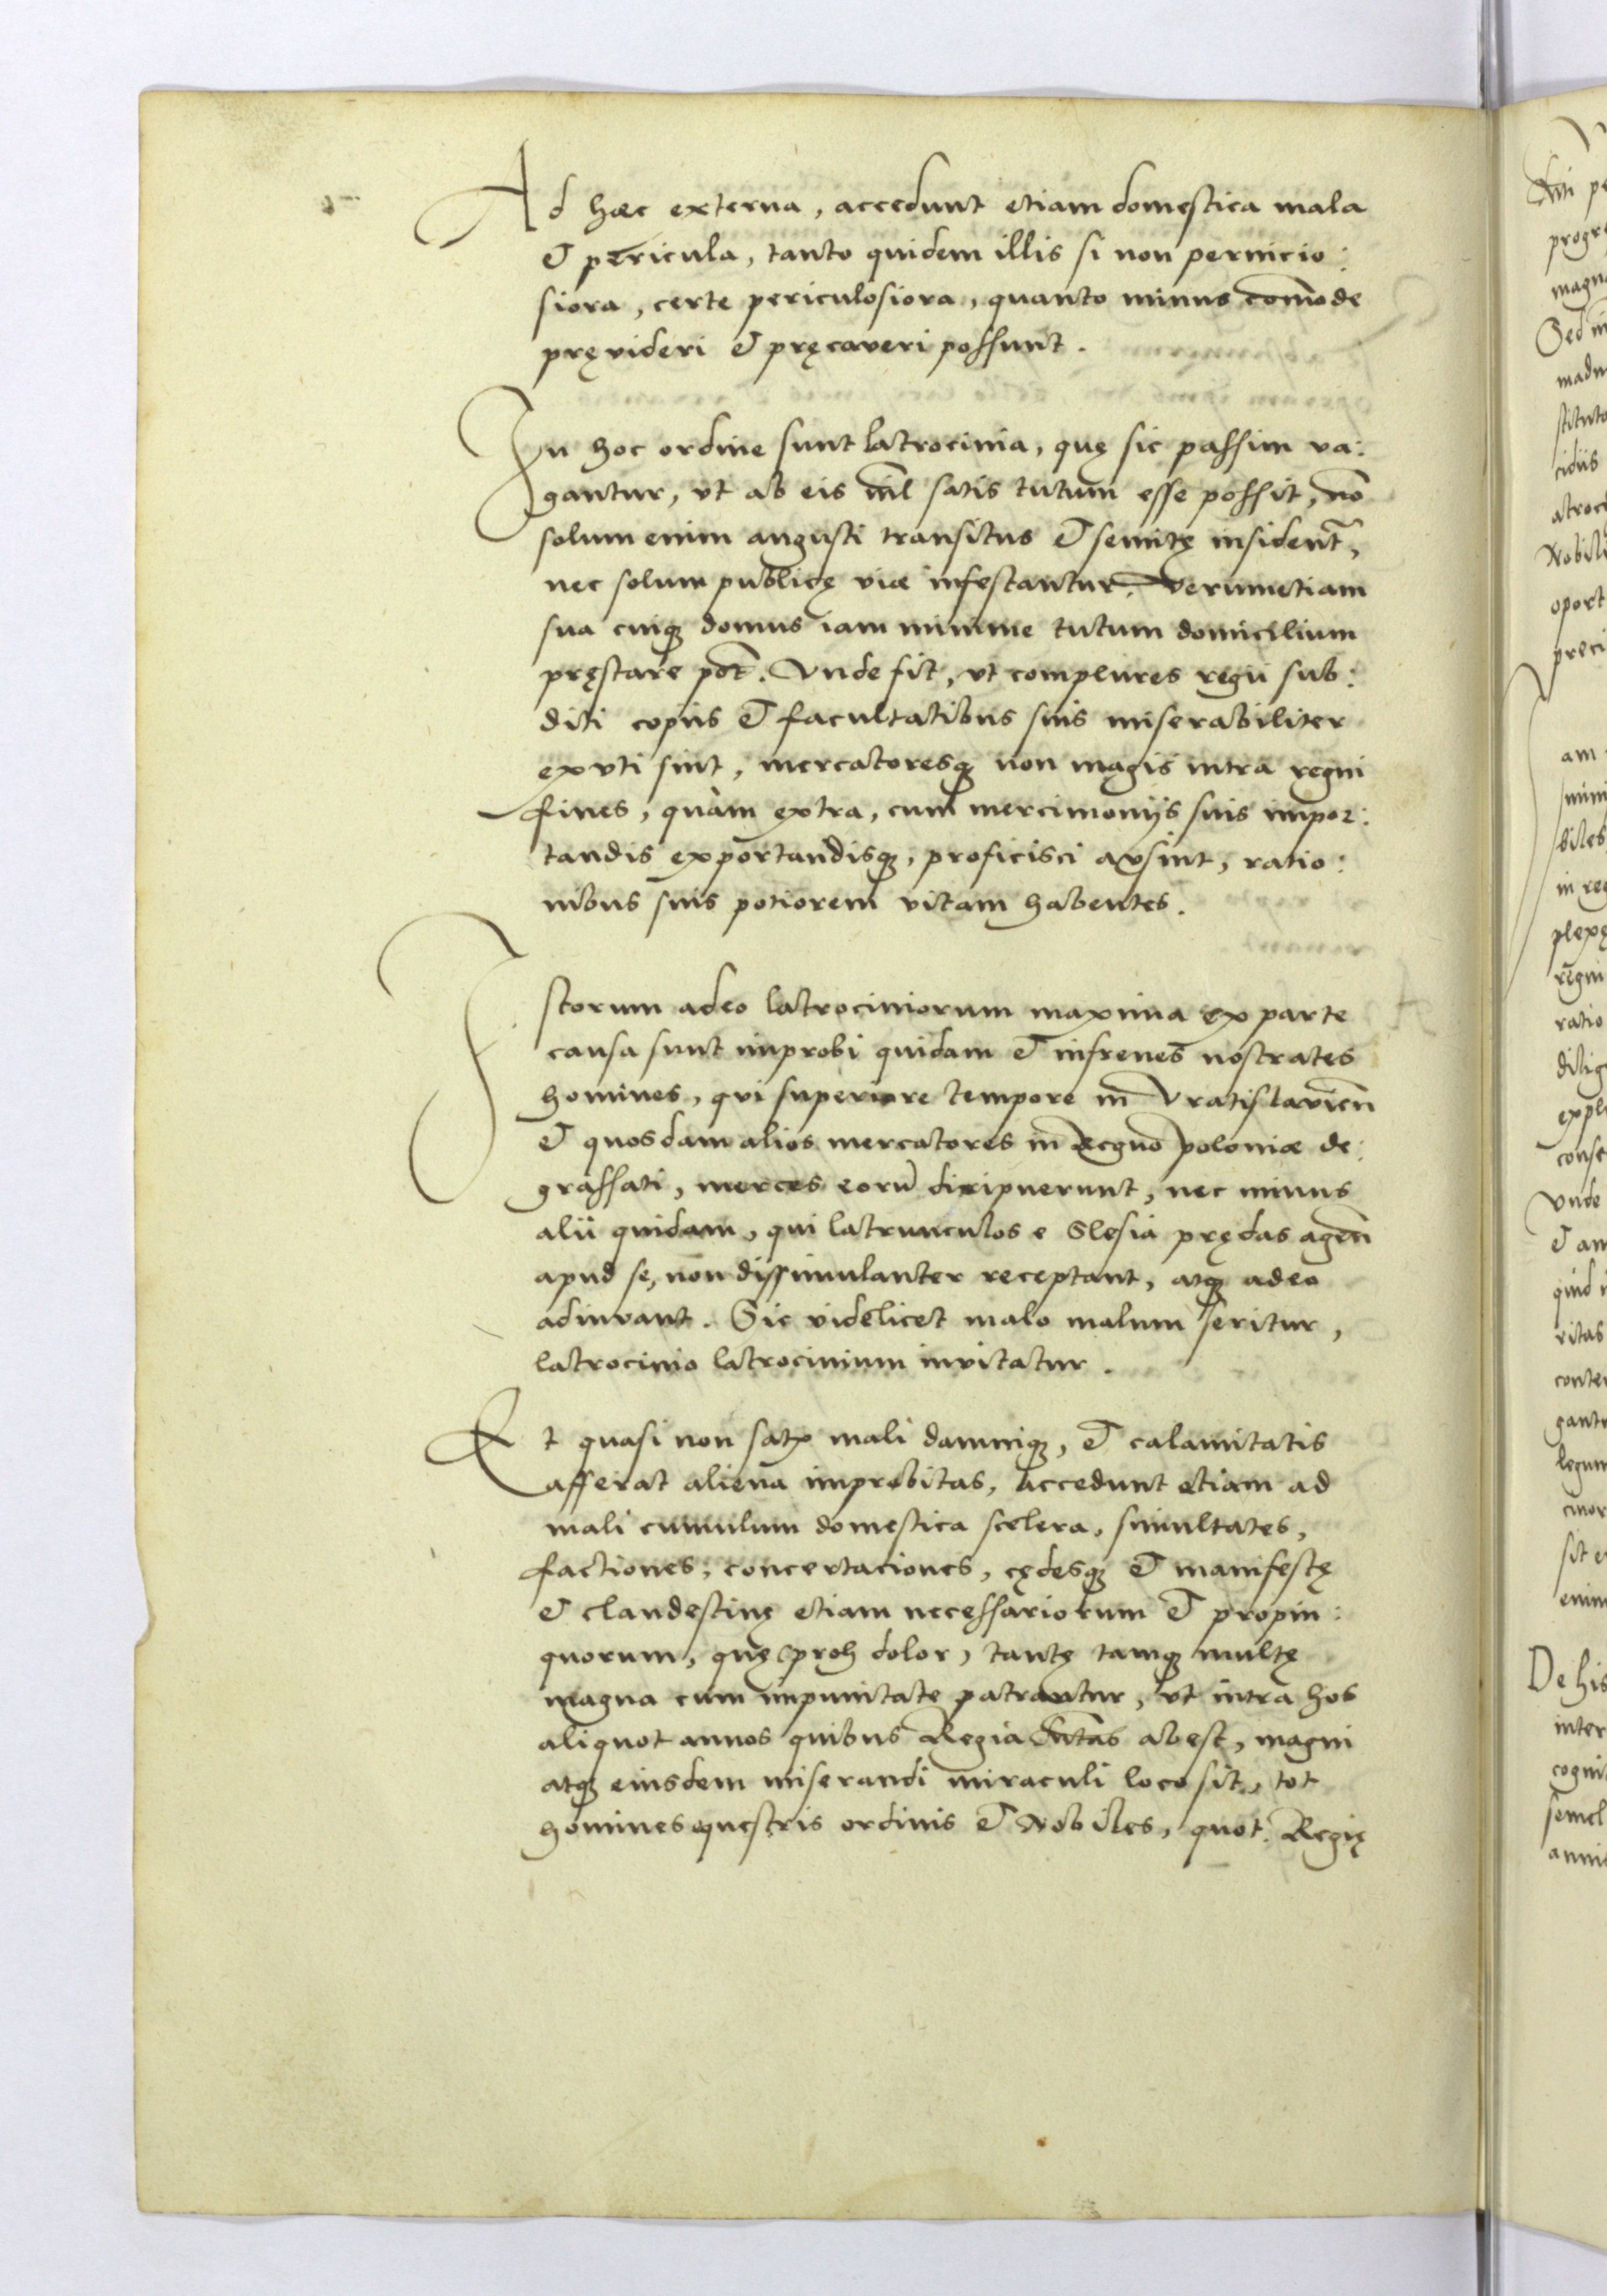 Ad haec externa, accedunt etiam domestica mala
et pericula, tanto quidem illis si non pernicio:
siora, certe periculosiora, quanto minus com̄ode
pręvideri et pręcaveri possunt.
In hoc ordine sunt latrocinia, quę sic passim va:
gantur, vt ab eis nīl satis tutum esse possit, nō
solum enim angusti transitus et semitę insident̄,
nec solum publicę viae infestantur. Verumetiam
sua cuiqꝫ domus iam minime tutum domicilium
pręstare pōt. Vnde fit, vt complures regii sub:
diti copiis et facultatibus suis miserabiliter
exuti sint, mercatoresqꝫ non magis intra regni
fines, quàm extra, cum mercimonijs suis impor:
tandis exportandisqꝫ, proficisci ausint, ratio:
nibus suis potiorem vitam habentes.
Istorum adeo latrociniorum maxima ex parte
causa sunt improbi quidam et infrenes nostrates
homines, qui superiore tempore in Vratislavien̄
et quosdam alios mercatores in Regno poloniae de:
grassati, merces eorū diripuerunt, nec minus
alii quidam, qui latrunculos e Slesia prędas agen̄
apud se, non dissimulanter receptant, atqꝫ adeo
adiuvant. Sic videlicet malo malum seritur,
latrocinio latrocinium invitatur.
Et quasi non satis mali damniqꝫ, et calamitatis
afferat aliena improbitas, accedunt etiam ad
mali cumulum domestica scelera, simultates,
factiones, concertaciones, cędesqꝫ et manifestę
et clandestinę etiam necessariorum et propin:
quorum, quę (proh dolor) tantę tamqꝫ multę
magna cum impunitate patrantur, vt intra hos
aliquot annos quibus Regia Mtas abest, magni
atqꝫ eiusdem miserandi miraculi loco sit, tot
homines equestris ordinis et Nobiles, quot Regię
progre
magn
Sed in
madm
stituto
cidiis
atroci
Nobili
oport
preci
am
biles
in reg
plexę
regni
ratio
dilig
expli
conse
Vnde
et am
quid
ritas
conte
gantu
legum
sit e
enim
De his
inter
cogni
semel
anni